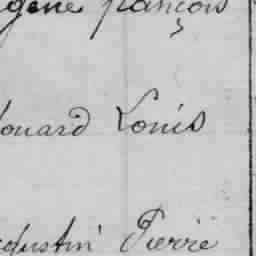 gène françois
douard Louis
gustin Pierre